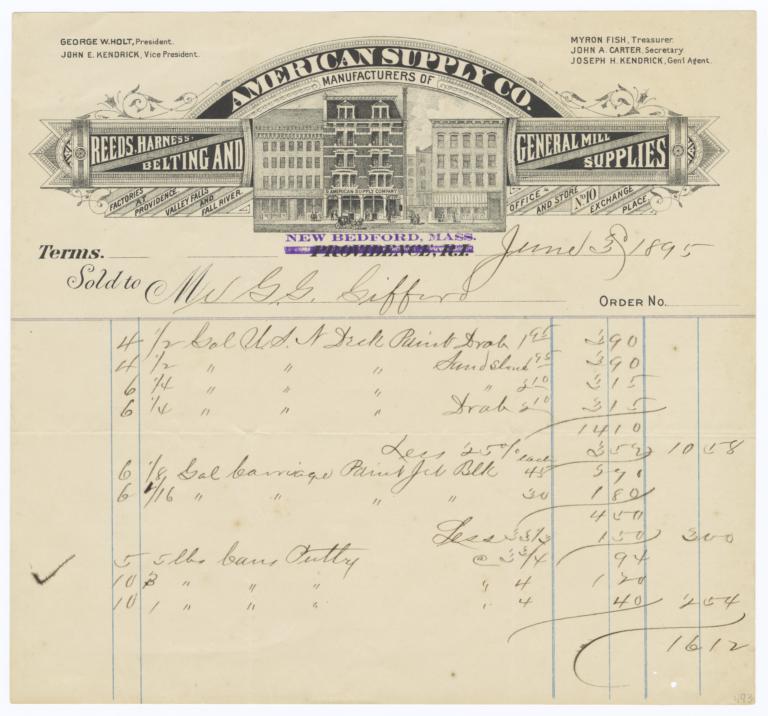 GEORGE W. HOLT, President.
JOHN E. KENDRICK, Vice President.
MYRON FISH, Treasurer.
JOHN A. CARTER, Secretary
JOSEPH H. KENDRICK, Gen'l Agent.
AMERICAN SUPPLY CO.
MANUFACTURERS OF
REEDS, HARNESS, BELTING AND
GENERAL MILL SUPPLIES
AMERICAN SUPPLY COMPANY
FACTORIES AT PROVIDENCE, VALLEY FALLS AND FALL RIVER.
OFFICE AND STORE No 10 EXCHANGE PLACE.
NEW BEDFORD, MASS.
PROVIDENCE, R.I.
June 3 1895
Terms.
Sold to G. G. Gifford
ORDER No.
4 1/2 Gal U.S.N Deck Paint Drab 1 95 3 90
4 1/2 " " " 1 95 3 90
6 1/4 " " " " 2 10 3 15
6 1/4 " " " Drab 2 10 3 15
14 10
Less 25% 3 52 10 58
6 1/8 Gal Carriage Paint Jet Blk 45
6 1/16 " " " " 30 1 80
4 50
Less 33 1/3 1 50 3 00
5 5 lbs Cans Putty @ 3 3/4 94
10 3 " " " " 4 1 20
10 1 " " " " 4 40 2 54
16 12
493